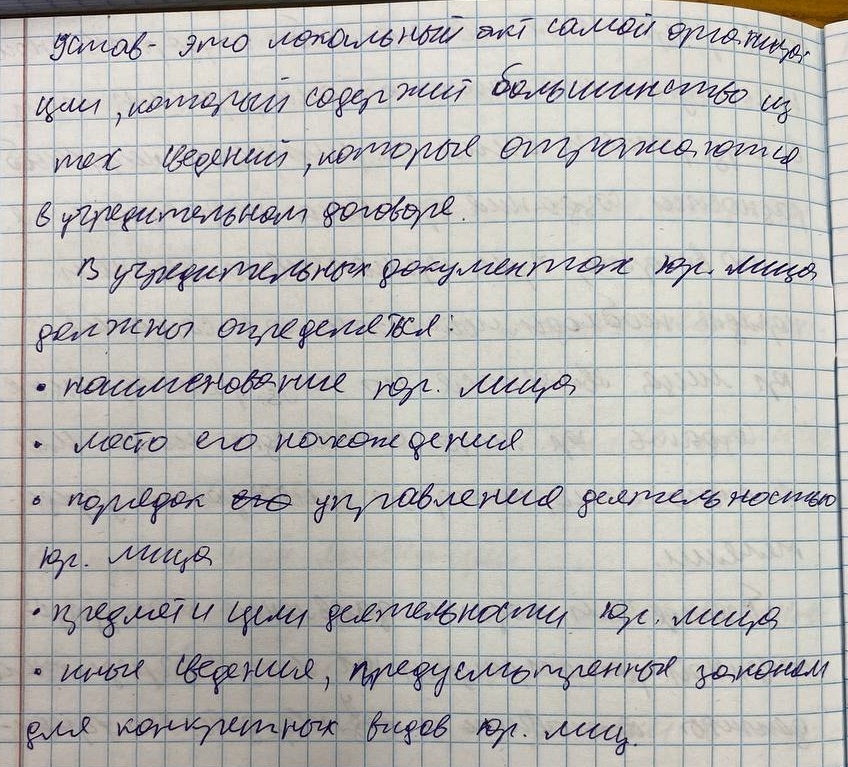 Устав - это локальный акт самой организа-
ции, который содержит большинство из
тех сведений, которые отражаются
в учредительном договоре.
В учредительных документах юр. лица
должны определяться:
• наименование юр. лица
• место его нахождения
• порядок его управления деятельностью
юр. лица
• предмет и цели деятельности юр. лица
• иные сведения, предусмотренные законом
для конкретных видов юр. лиц.